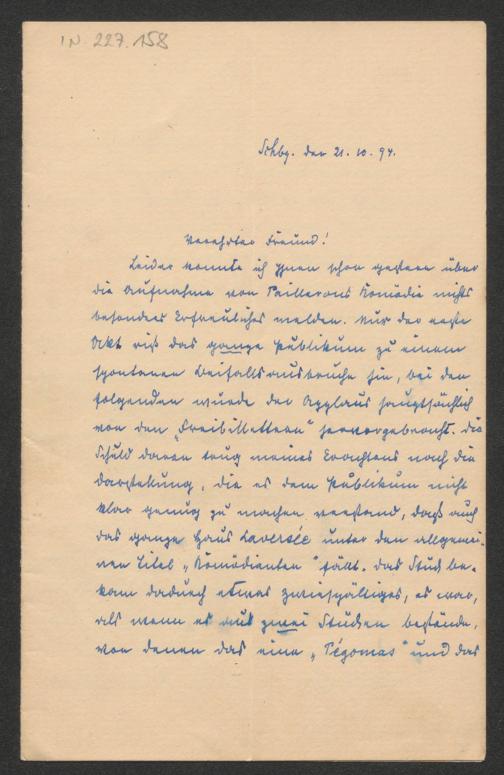 IN 227.158
Schbg. den 21. 10. 94.
Verehrter Freund!
Leider konnte ich Ihnen schon gestern über
die Aufnahme von Paillerons Komödie nichts
besonders Erfreuliches melden. Nur der erste
Akt riß das ganze Publikum zu einem
spontanen Beifallsausbruche hin, bei den
folgenden wurde der Applaus hauptsächlich
von den „Freibillettern" hervorgebracht. Die
Schuld daran trug meines Erachtens nach die
Darstellung, die es dem Publikum nicht
klar genug zu machen verstand, daß auch
das ganze Haus Laversée unter den allgemei-
nen Titel „Komödianten" fällt. Das Stück be-
kam dadurch etwas zwiespältiges, es war,
als wenn es aus zwei Stücken bestände,
von denen das eine „Pégomas" und das